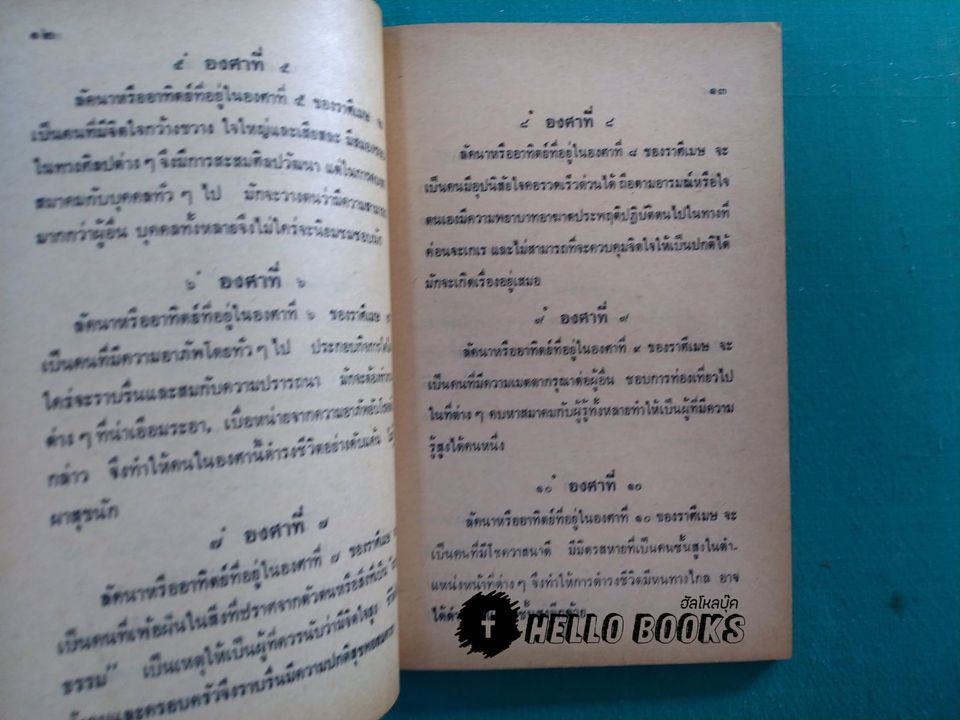 ๑๒
๕° องศาที่ ๕
ลัคนาหรืออาทิตย์ที่อยู่ในองศาที่ ๕ ของราศีเมษ จะ
เป็นคนที่มีจิตใจกว้างขวาง ใจใหญ่และเสียสละ มีสมอง
ในทางศิลปต่าง ๆ จึงมีการสะสมศิลปวัฒนา แต่ในการ
สมาคมกับบุคคลทั่ว ๆ ไป มักจะวางตนว่ามีความสามารถ
มากกว่าผู้อื่น บุคคลทั้งหลายจึงไม่ใคร่จะนิยมชมชอบนัก
๖° องศาที่ ๖
ลัคนาหรืออาทิตย์ที่อยู่ในองศาที่ ๖ ของราศีเมษ
เป็นคนที่มีความอาภัพโดยทั่ว ๆ ไป ประกอบกิจการใด
ใคร่จะราบรื่นและสมกับความปรารถนา มักจะต้อง
ต่าง ๆ ที่น่าเอือมระอา, เบื่อหน่ายจากความอาภัพอับโชค
กล่าว จึงทำให้คนในองศานี้ดำรงชีวิตอย่างคับแค้น
ผาสุขนัก
๗° องศาที่ ๗
ลัคนาหรืออาทิตย์ที่อยู่ในองศาที่ ๗ ของราศีเมษ
เป็นคนที่เพ้อฝันในสิ่งที่ปราศจากตัวตนหรือสิ่งที่เป็น
ธรรม" เป็นเหตุให้เป็นผู้ที่ควรนับว่ามีจิตใจสูง
และครอบครัวจึงราบรื่นมีความปกติสุข
๑๓
๘° องศาที่ ๘
ลัคนาหรืออาทิตย์ที่อยู่ในองศาที่ ๘ ของราศีเมษ จะ
เป็นคนมีอุปนิสัยใจคอรวดเร็วด่วนได้ ถือตามอารมณ์หรือใจ
ตนเองมีความพยาบาทอาฆาตประพฤติปฏิบัติตนไปในทางที่
ค่อนจะเกเร และไม่สามารถที่จะควบคุมจิตใจให้เป็นปกติได้
มักจะเกิดเรื่องอยู่เสมอ
๙° องศาที่ ๙
ลัคนาหรืออาทิตย์ที่อยู่ในองศาที่ ๙ ของราศีเมษ จะ
เป็นคนที่มีความเมตตากรุณาต่อผู้อื่น ชอบการท่องเที่ยวไป
ในที่ต่าง ๆ คบหาสมาคมกับผู้รู้ทั้งหลายทำให้เป็นผู้ที่มีความ
รู้สูงได้คนหนึ่ง
๑๐° องศาที่ ๑๐
ลัคนาหรืออาทิตย์ที่อยู่ในองศาที่ ๑๐ ของราศีเมษ จะ
เป็นคนที่มีโชควาสนาดี มีมิตรสหายที่เป็นคนชั้นสูงในตำ-
แหน่งหน้าที่ต่าง ๆ จึงทำให้การดำรงชีวิตมีหนทางไกล อาจ
ได้ ชั้นสูงอีกด้วย
ฮัลโหลบุ๊ค
f HELLO BOOKS